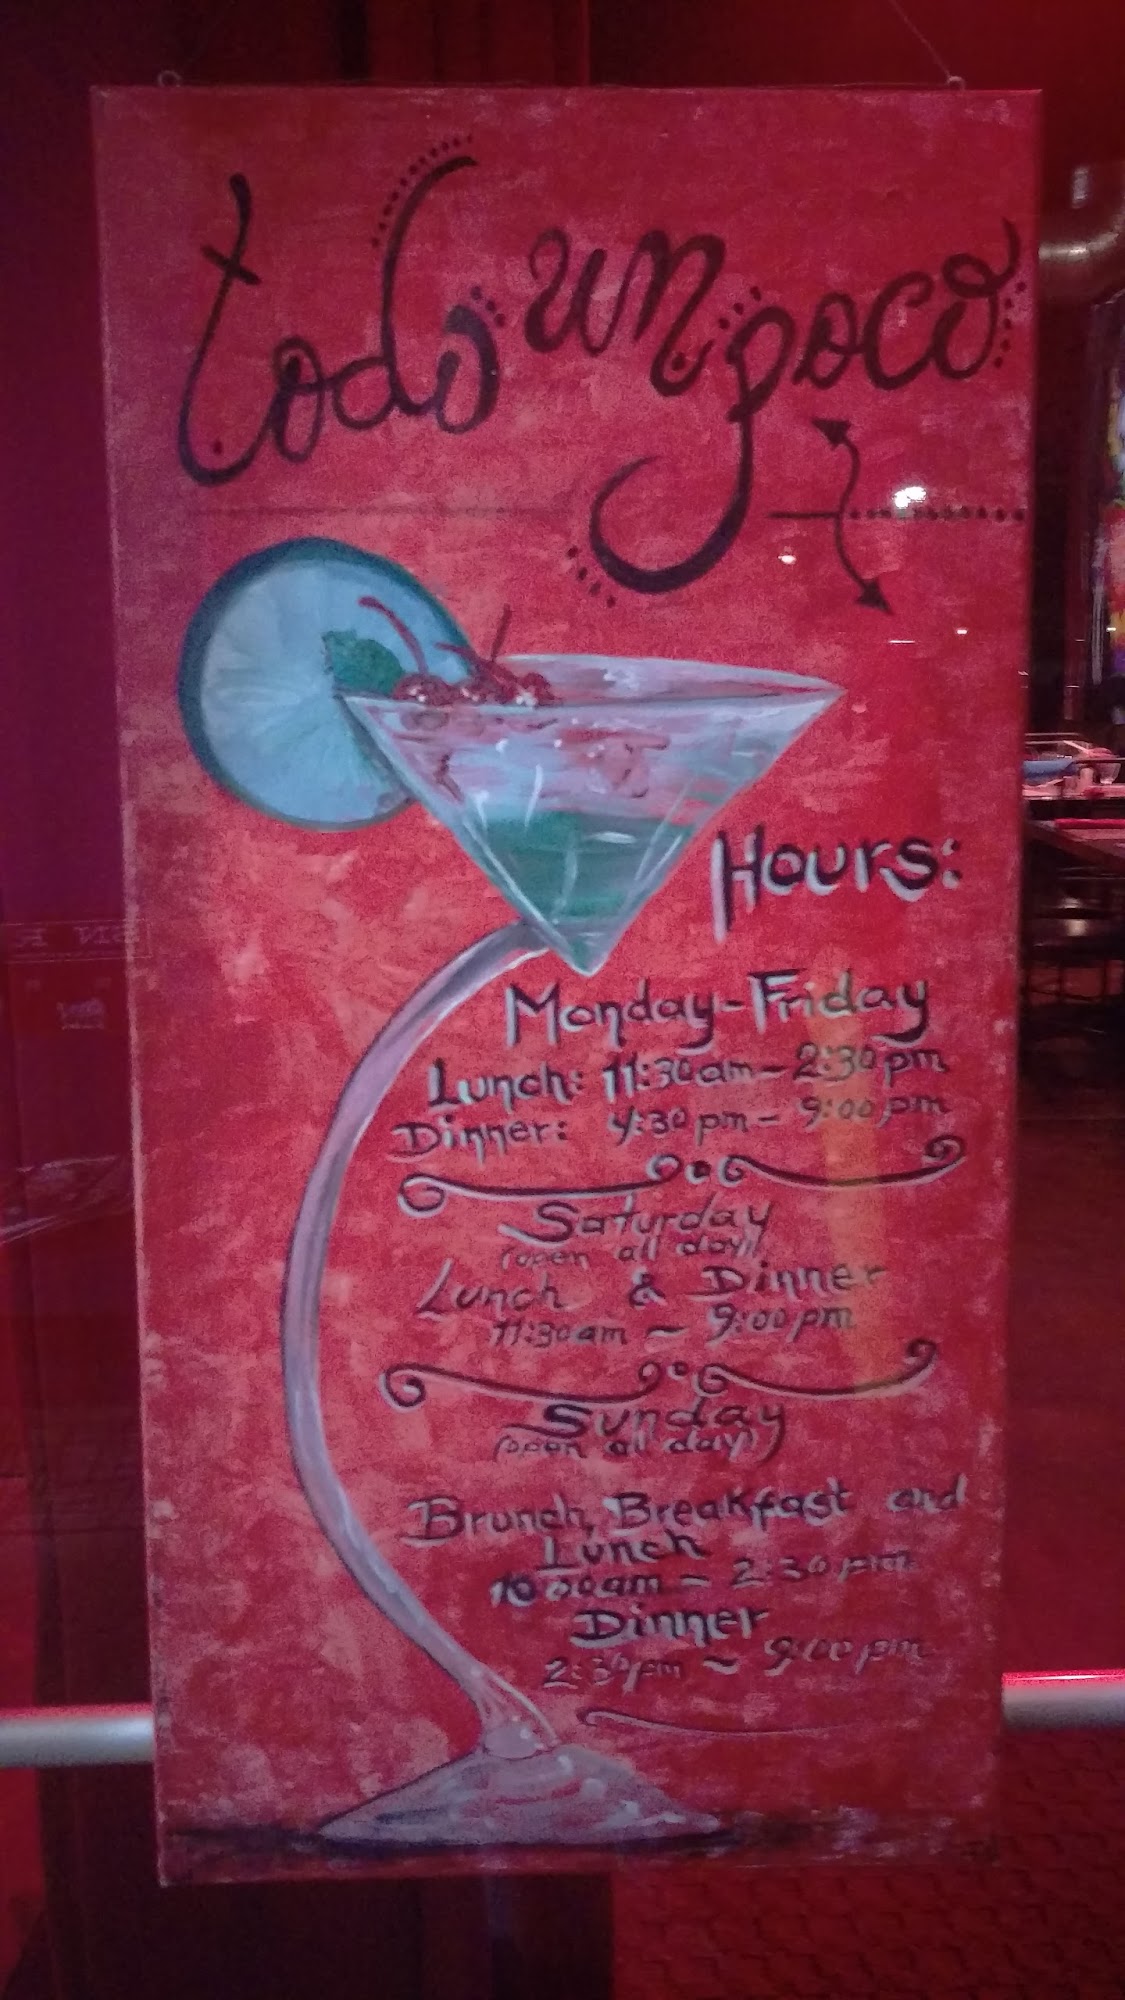 todo un poco
Hours:
Monday-Friday
Lunch: 11:30am - 2:30pm
Dinner: 4:30pm - 9:00pm
Saturday
(open all day)
Lunch & Dinner
11:30am - 9:00pm
Sunday
(open all day)
Brunch, Breakfast and
Lunch
10:00am - 2:30pm
Dinner
2:30pm - 9:00pm